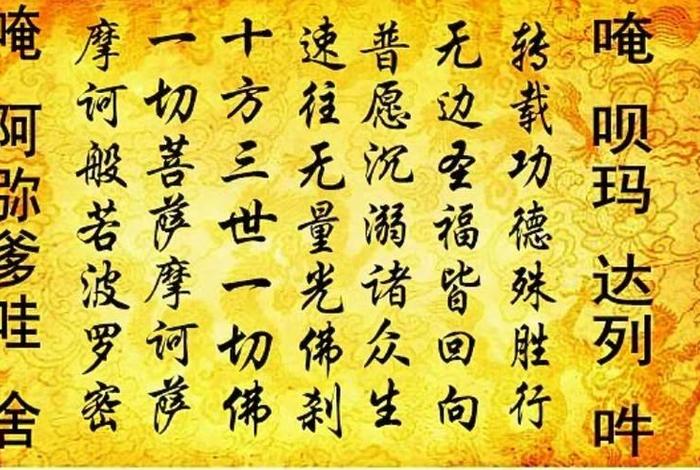 唵 呗玛 达列 吽
转载功德殊胜行
无边圣福皆回向
普愿沉溺诸众生
速往无量光佛刹
十方三世一切佛
一切菩萨摩诃萨
摩诃般若波罗密
唵 阿弥爹哇 舍